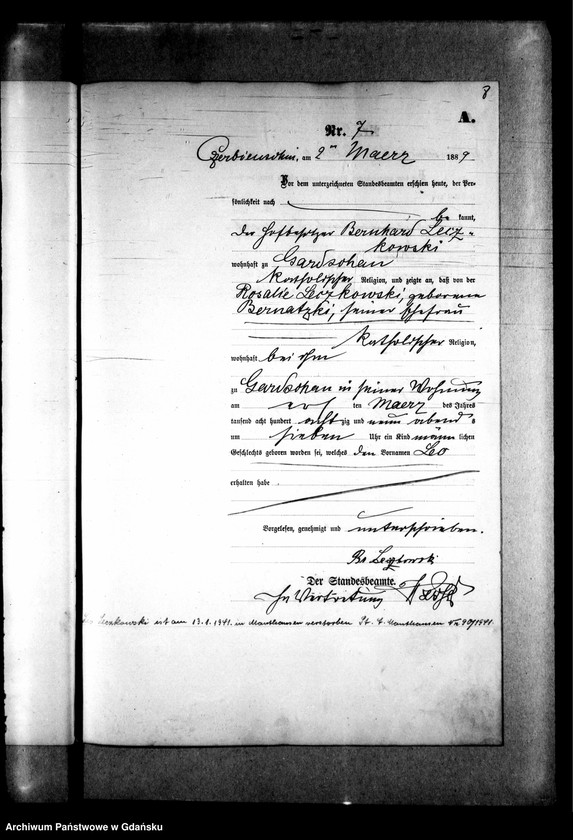 8
A.
Nr. 7
Czerbienschin, am 2ten Maerz 1889
Vor dem unterzeichneten Standesbeamten erschien heute, der Per-
sönlichkeit nach
be kannt,
der Hofbesitzer Bernhard Lecz-
kowski
wohnhaft zu Gardschau
katholischer Religion, und zeigte an, daß von der
Rosalie Leczkowski, geborene
Bernatzki, seiner Ehefrau
katholischer Religion,
wohnhaft bei ihm
zu Gardschau in seiner Wohnung
am ersten Maerz des Jahres
tausend acht hundert achtzig und neun abends
um sieben Uhr ein Kind männlichen
Geschlechts geboren worden sei, welches den Vornamen Leo
erhalten habe
Vorgelesen, genehmigt und unterschrieben.
Leczkowski
Der Standesbeamte.
In Vertretung
Leczkowski ist am 13.1.1941. in Mauthausen verstorben St. A. Mauthausen Nr. 90/1941.
Archiwum Państwowe w Gdańsku